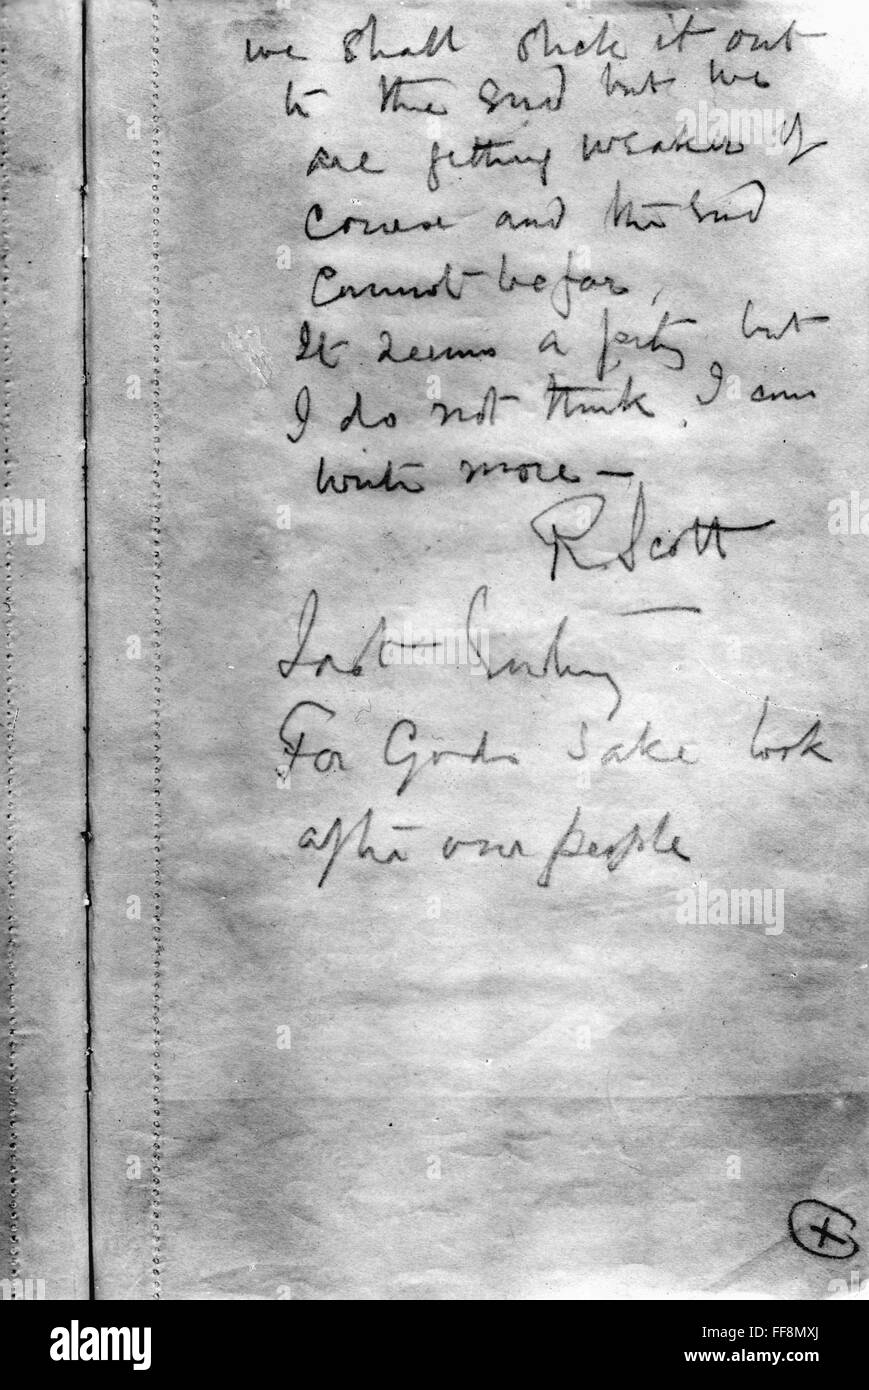 we shall stick it out
to the end but we
are getting weaker of
course and the end
cannot be far.
It seems a pity but
I do not think I can
write more —
R. Scott
Last Entry
For Gods sake look
after our people
alamy
Image ID: FF8MXJ
www.alamy.com